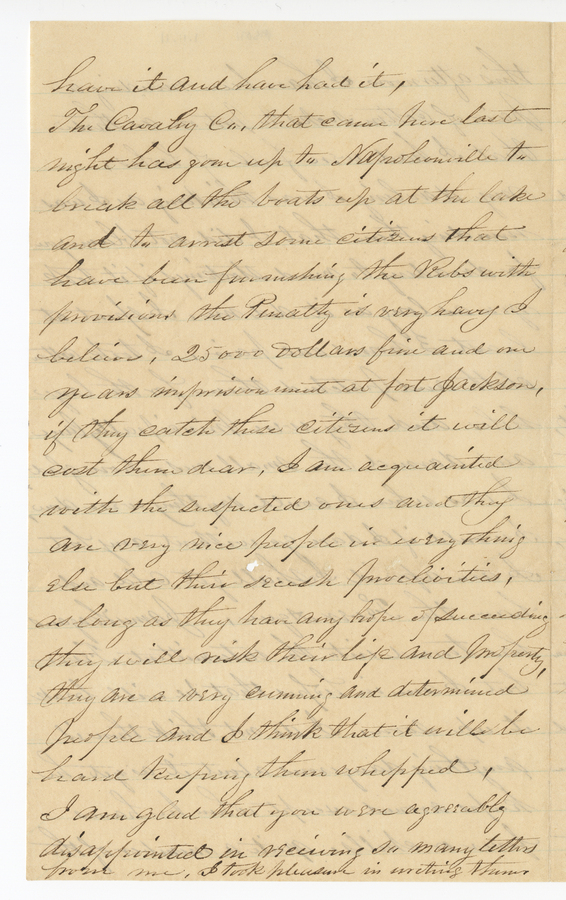 have it and have had it,
The Cavalry Co, that came here last
night has gone up to Napoleonville to
break all the boats up at the lake
and to arrest some citizens that
have been furnishing the Rebs with
provisions the Penalty is very heavy I
believe, 25000 Dollars fine and one
years imprisionment at fort Jackson,
if they catch these citizens it will
cost them dear, I am acquainted
with the suspected ones and they
are very nice people in everything
else but their secesh proclivities,
as long as they have any hope of succeeding
they will risk their life and property,
they are a very cunning and determined
People and I think that it will be
hard keeping them whipped,
I am glad that you were agreeably
disappointed in receiving so many letters
from me, I took pleasure in writing them